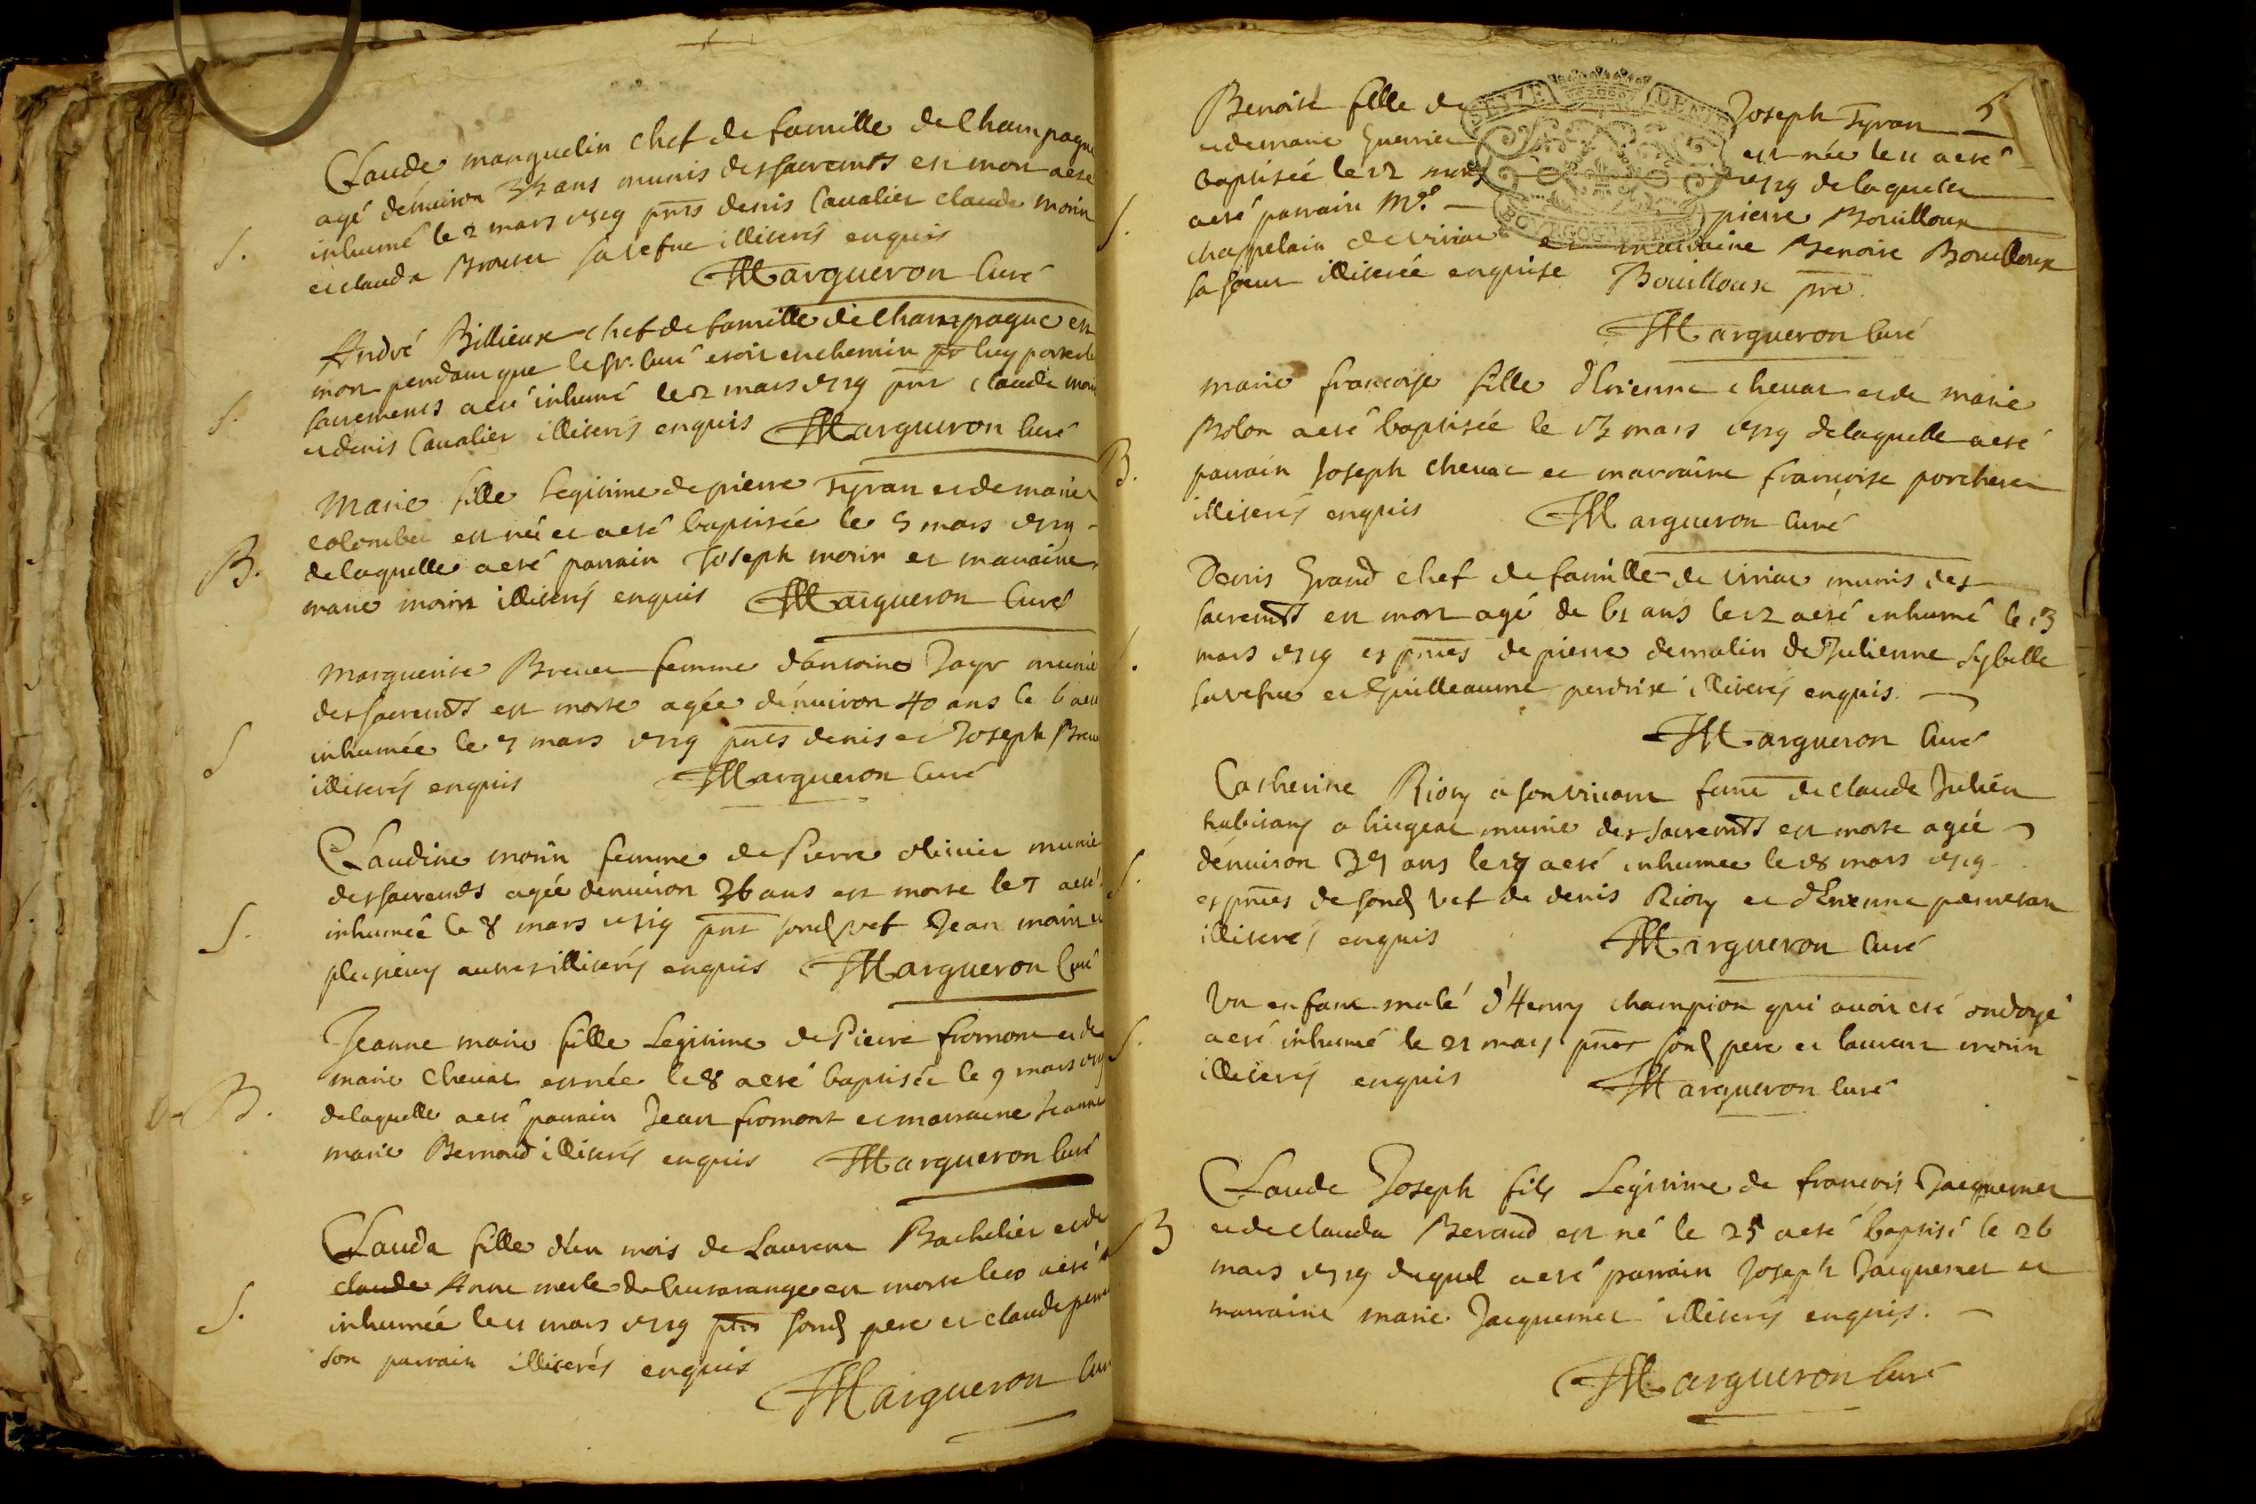 Claude manguelin chef de famille de Champagne
agé dénuiron 35 ans munis des sacremts est mort a eté
S. inhumé le 2 mars 1719 pnts denis Cavalier claude morin
et clauda Brouter sa vefue illiterés enquis
Margueron Curé
André Billieux chef de famille de Champagne est
mort pendant que le sr. curé etoit en chemin pr luy porter les
S. sacrements a eté inhumé le 2 mars 1719 pnt claude morin
et denis Cavalier illiterés enquis Margueron Curé
Marie fille Legitime de pierre Tyran et de marie
colombet est née et a eté baptisée le 5 mars 1719
B. de laquelle a eté parrain Joseph morin et maraine
marie morin illiterés enquis Margueron Curé
Marguerite Brevet femme d'antoine Jayr munie
des sacremts est morte agée dénuiron 40 ans le 6 a eté
S inhumée le 7 mars 1719 pnts denis et Joseph Brevet
illiterés enquis Margueron Curé
Claudine morin femme de Pierre olivier munie
des sacremts agée denuiron 36 ans est morte le 7 a eté
S. inhumée le 8 mars 1719 pnt sond vef Jean morin et
plusieurs autres illiterés enquis Margueron Curé
Jeanne marie fille Legitime de Pierre fromont et de
marie Chevat est née le 8 a eté baptisée le 9 mars 1719
B. de laquelle a eté parrain Jean fromont et marraine Jeanne
marie Bernard illiterés enquis Margueron Curé
Clauda fille d'un mois de Laurent Bachelier et de
claude Anne merle de est morte le 10 a eté
S. inhumée le 11 mars 1719 pnts sond pere et claude
son parrain illiterés enquis
Margueron Curé
SEIZE DENIERS
BOURGOGNE BRESSE
5
Benoite fille de Joseph Tyran
et de marie Guerrier est née le 11 a eté
baptisée le 12 mars 1719 de laquelle
S. a eté parrain Mre pierre Bouilloux
chappelain de viriat et marraine Benoite Bouilloux
sa soeur illiterée enquise Bouilloux pre
Margueron Curé
marie françoise fille d'Etienne chevat et de marie
Bolon a eté baptisée le 13 mars 1719 de laquelle a eté
B. parrain Joseph chevat et marraine françoise porcheret
illiterés enquis Margueron Curé
Denis Grand chef de famille de viriat munis des
sacremts est mort agé de 61 ans le 12 a eté inhumé le 13
mars 1719 es pnces de pierre demalin de Julienne Sybelle
sa vefue et Guilleaume perdrix illiterés enquis.
Margueron Curé
Catherine Riory a son vivant feme de claude Julien
habitans a munie des sacremts est morte agée
dénuiron 35 ans le 17 a eté inhumee le 18 mars 1719
S. es pnces de sond vef de denis Riory et d'Etienne
illiterés enquis Margueron Curé
Un enfant mâle d'Henry champion qui avoit eté ondoyé
S. a eté inhumé le 21 mars pnts sond pere et laurent morin
illiterés enquis Margueron Curé
Claude Joseph fils Legitime de francois Jacquemet
B et de clauda Beraud est né le 25 a eté baptisé le 26
mars 1719 duquel a eté parrain Joseph Jacquemet et
marraine marie Jacquemet illiterés enquis.
Margueron Curé